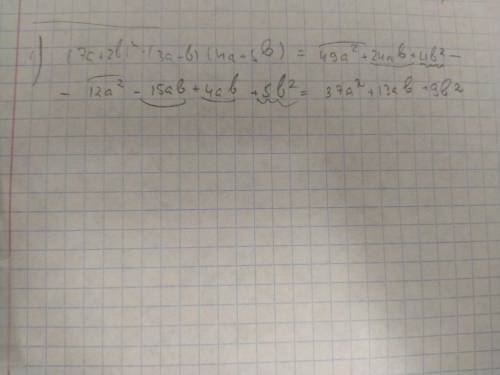 1) (7a+2b)²-(3a-b)(4a+5b) = 49a²+24ab+4b²-
- 12a² - 15ab + 4ab + 5b² = 37a² + 13ab + 9b²